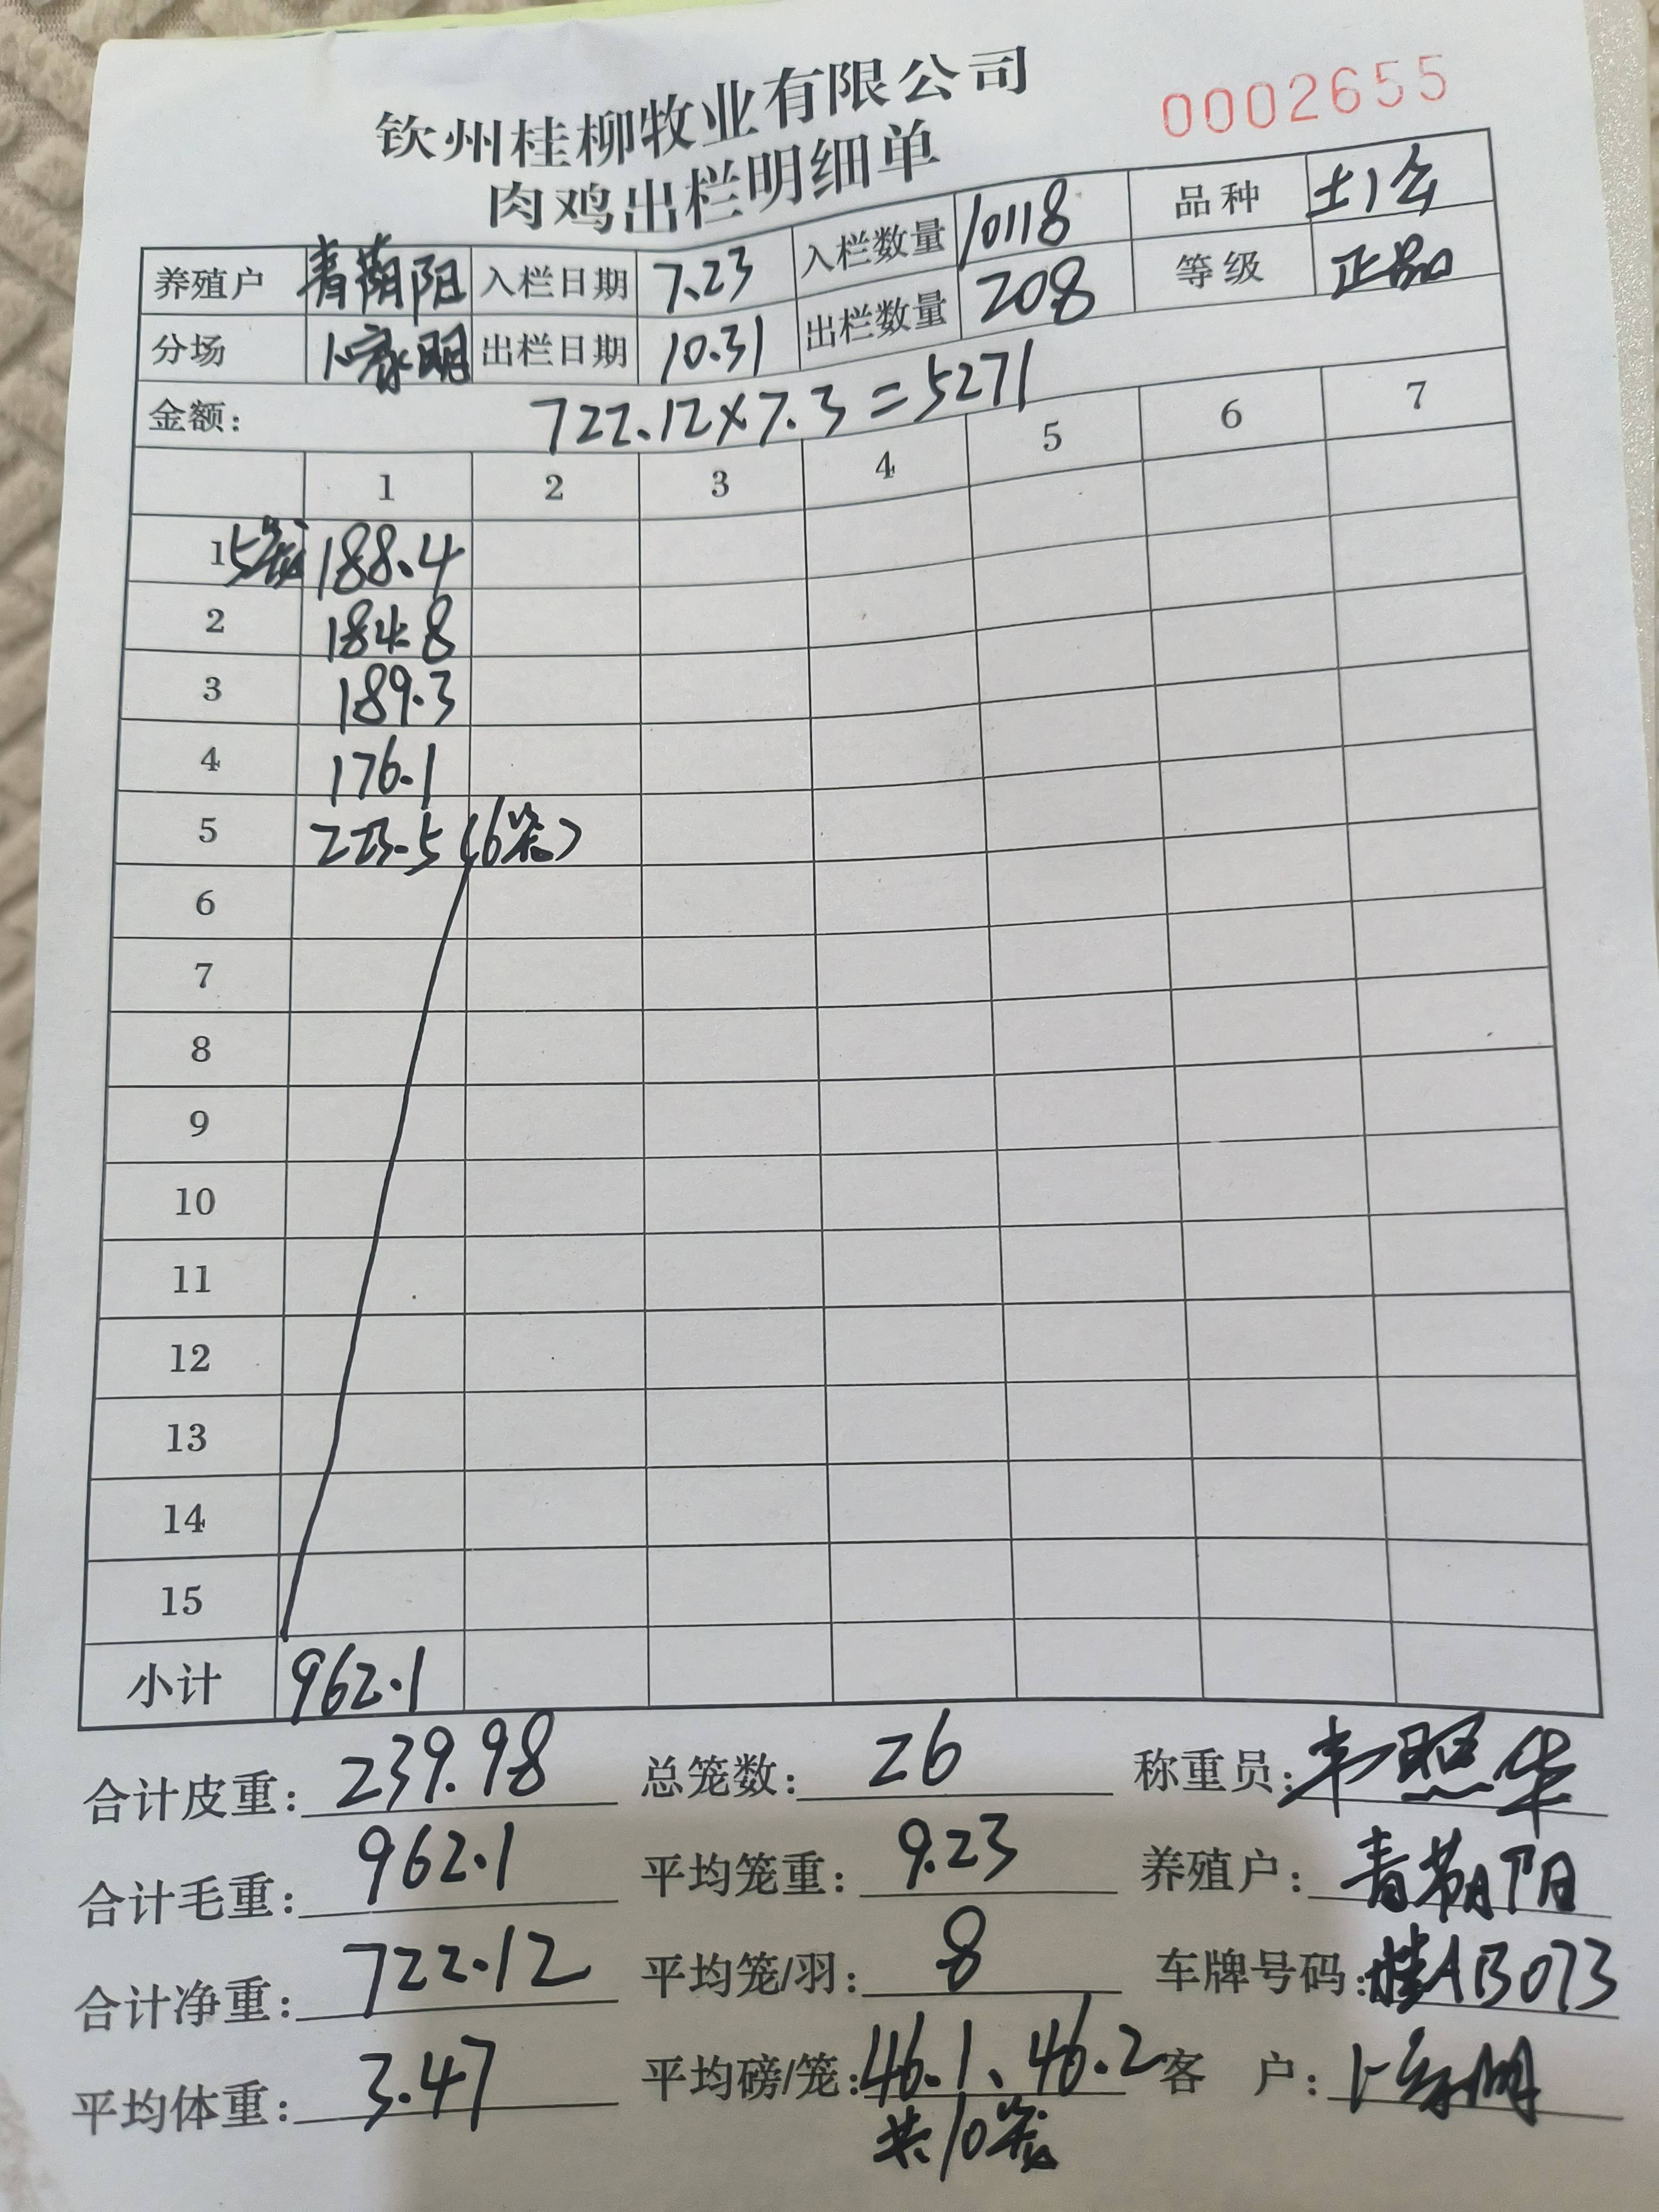 钦州桂柳牧业有限公司
0002655
肉鸡出栏明细单
养殖户 青朝阳 入栏日期 7.23 入栏数量 10118 品种 土1公
分场 出栏日期 10.31 出栏数量 208 等级 正品
金额: 722.12×7.3=5271
1 2 3 4 5 6 7
1 5笼 188.4
2 184.8
3 189.3
4 176.1
5 223.5 (6笼)
6
7
8
9
10
11
12
13
14
15
小计 962.1
合计皮重: 239.98 总笼数: 26 称重员: 韦照华
合计毛重: 962.1 平均笼重: 9.23 养殖户: 青朝阳
合计净重: 722.12 平均笼/羽: 8 车牌号码: 桂AB073
平均体重: 3.47 平均磅/笼: 46.1、46.2 客 户:
共10笼